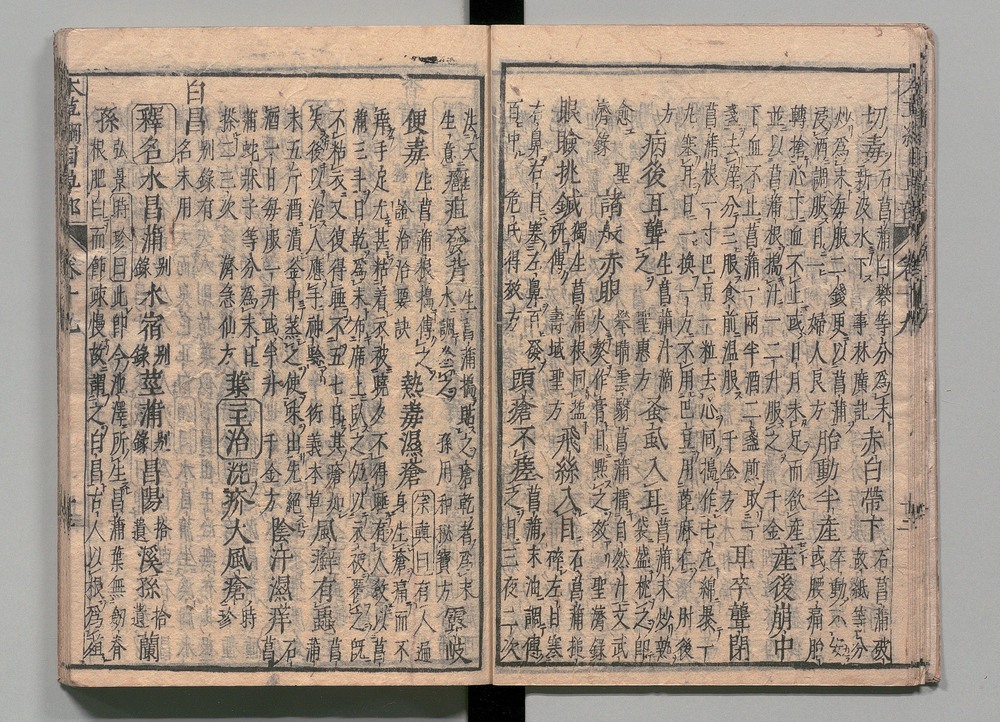 切毒石菖蒲白礬等分爲末
新汲水下事林廣記赤白帶下石菖蒲破故紙等分
炒爲末每服二錢更以菖蒲
浸酒調服日一婦人良方胎動半產卒動不安或腰痛胎
轉搶心下血不止或日月未足而欲產
並以菖蒲根搗汁一二升服之千金產後崩中
下血不止菖蒲一兩半酒二盞煎取一
盞去滓分三服食前溫服千金方耳卒聾閉
菖蒲根一寸巴豆一粒去心同搗作七丸綿裹一
丸塞耳日一換一方不用巴豆用蓖麻仁肘後
方病後耳聾生菖蒲汁滴之聖惠方蚤虱入耳菖蒲末炒熱
袋盛枕之即
愈聖濟錄諸般赤眼攀睛雲翳菖蒲擣自然汁文武
火熬作膏日點之效聖濟錄
眼瞼挑鍼獨生菖蒲根同鹽研傅壽域方飛絲入目石菖蒲搥
碎左目塞
右鼻右目塞左鼻百發
百中危氏得效方頭瘡不瘥菖蒲末油調傅之日三夜二次
法天生意癰疽發背生菖蒲搗貼之瘡乾者爲末
水調塗之孫用和秘寶方露岐
便毒生菖蒲根搗傅之證治要訣熱毒濕瘡宗奭曰有人遍
身生瘡痛而不
痒手足尤甚粘着衣被曉夕不得睡有人教以菖
蒲三斗日乾爲末布席上臥之仍以衣被覆之既
不粘衣又復得睡不五七日其瘡如
失後以治人應手神驗衍義本草風癬有蟲菖蒲
末五斤酒漬釜中蒸之使味出先絕
酒一日每服一升或半升千金方陰汗濕痒石菖
蒲蛇牀子等分爲末日
搽二三次濟急仙方葉主治洗疥大風瘡時珍
白昌別錄有名未用
釋名水昌蒲別錄水宿別錄莖蒲別錄昌陽拾遺溪孫拾遺蘭
孫弘景時珍曰此即今池澤所生昌蒲葉無劍脊
根肥白而節疎慢故謂之白昌古人以根爲菹